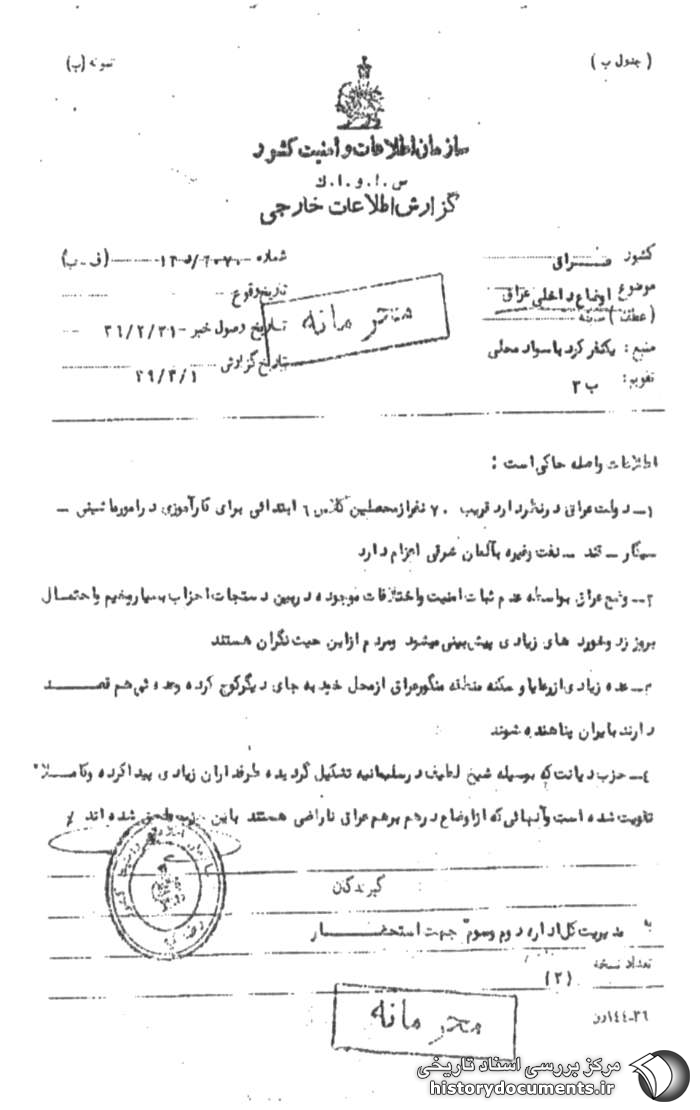 ( جدول ب )
نمونه (ب)
سازمان اطلاعات و امنیت کشور
س . ا . و . ا . ك
گزارش اطلاعات خارجی
کشور عراق
شماره (ف - ب)
موضوع اوضاع داخلی عراق
تاریخ وقوع
( عطف )
تاریخ وصول خبر - ۳۹/۲/۳۱
منبع : یکنفر کرد با سواد محلی
تاریخ گزارش ۳۹/۳/۱
تقویم : ب ۳
محرمانه
اطلاعات واصله حاکی است :
۱- دولت عراق در نظر دارد قریب ۷۰ نفر از محصلین کلاس ۶ ابتدائی برای کارآموزی در امور ماشینی -
سیگار - قند - نفت وغیره بآلمان شرقی اعزام دارد
۲- وضع عراق بواسطه عدم ثبات امنیت واختلافات موجوده در بین دستجات احزاب بسیار وخیم واحتمال
بروز زد وخورد های زیادی پیش بینی میشود ومردم از این حیث نگران هستند
۳- عده زیادی از رعایا و سکنه منطقه منگور عراق از محل خود به جای دیگر کوچ کرده وعده ئی هم قصد
دارند بایران پناهنده شوند
٤- حزب دیانت که بوسیله شیخ لطیف در سلیمانیه تشکیل گردیده طرفداران زیادی پیدا کرده وکاملا"
تقویت شده است وآنهائی که از اوضاع درهم برهم عراق ناراضی هستند باین حزب ملحق شده اند
گیرندگان
به مدیریت کل اداره دوم وسوم جهت استحضار
تعداد نسخه (۲)
محرمانه
۳۶-۱٤٤دن
مرکز بررسی اسناد تاریخی
historydocuments.ir